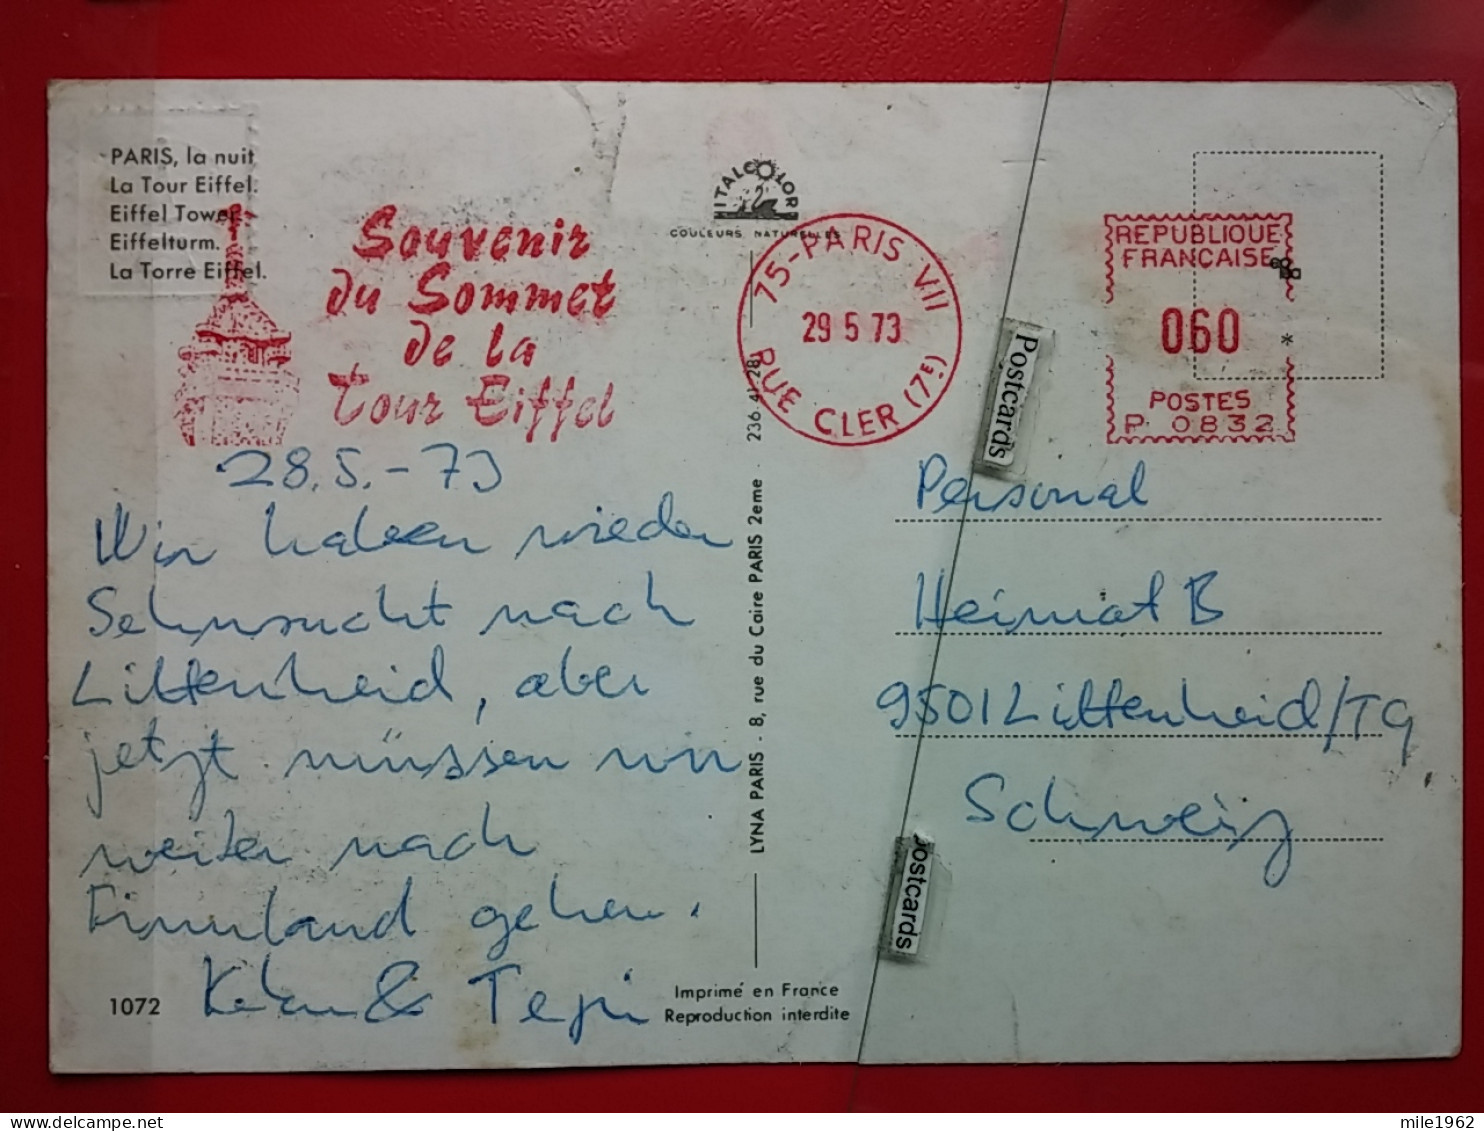 PARIS, la nuit
La Tour Eiffel.
Eiffel Tower.
Eiffelturm.
La Torre Eiffel.
Souvenir
du Sommet
de la
Tour Eiffel
ITALCOLOR
COULEURS NATURELLES
75-PARIS VII
29 5 73
RUE CLER (7E)
REPUBLIQUE
FRANCAISE
060
POSTES
P. 0832
28.5.-73
Wir haben wieder
Sehnsucht nach
Littenheid, aber
jetzt müssen wir
weiter nach
Finnland gehen.
& Tepi
1072
LYNA PARIS - 8, rue du Caire PARIS 2eme - 236.41.28
Imprimé en France
Reproduction interdite
Postcards
Postcards
Personal
Heimat B
9501 Littenheid/TG
Schweiz
mile1962